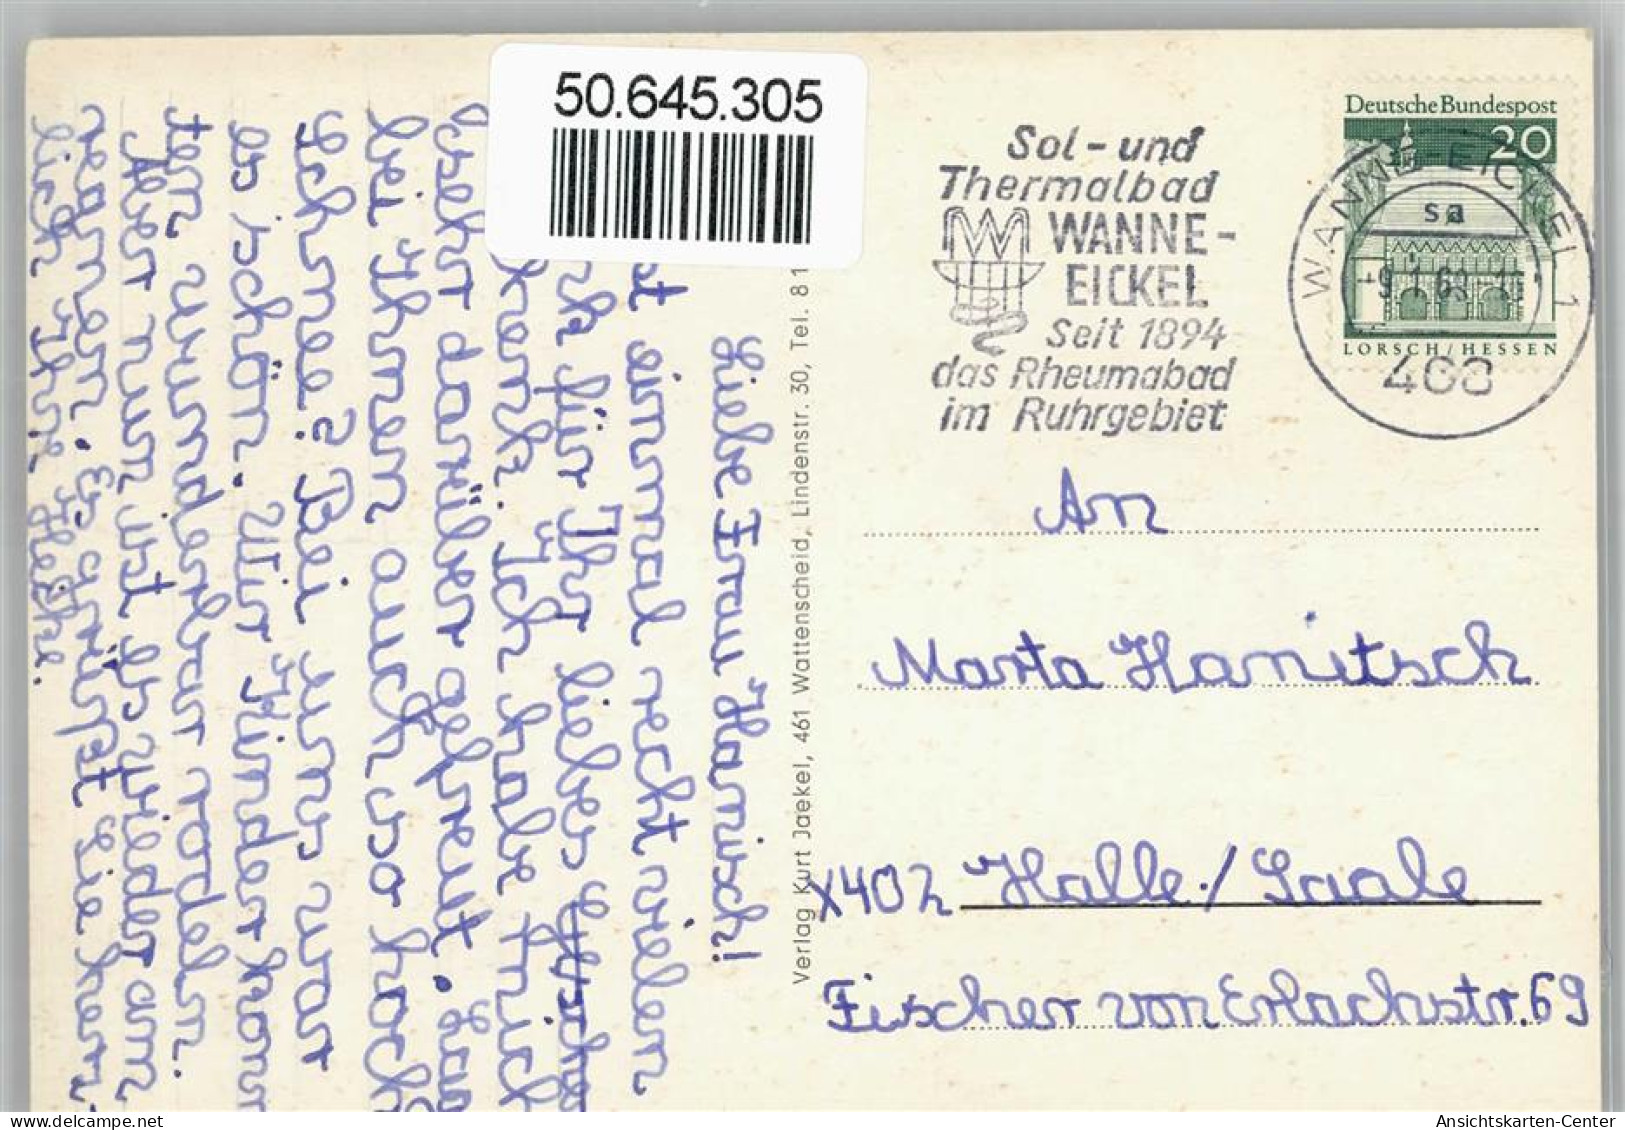 50.645.305
Sol- und
Thermalbad
WANNE-
EICKEL
Seit 1894
das Rheumabad
im Ruhrgebiet
Deutsche Bundespost
20
LORSCH/HESSEN
WANNE-EICKEL 1
sa
-9.1.69-15
468
An
Marta Hanitsch
X402 Halle/Saale
Fischer von Erlachstr. 69
Verlag Kurt Jaekel, 461 Wattenscheid, Lindenstr. 30, Tel. 81
Liebe Frau Hanisch!
st einmal recht vielen
für Ihr liebes
henk. Ich habe mich
sehr darüber gefreut. Lag
bei Ihnen auch so hoch
Schnee? Bei uns war
es schön. Wir Kinder konn-
ten wunderbar rodeln.
Aber nun ist es wieder am
regnen. Es grüßt Sie herz-
lich Ihre Heike.
delcampe.net
Ansichtskarten-Center